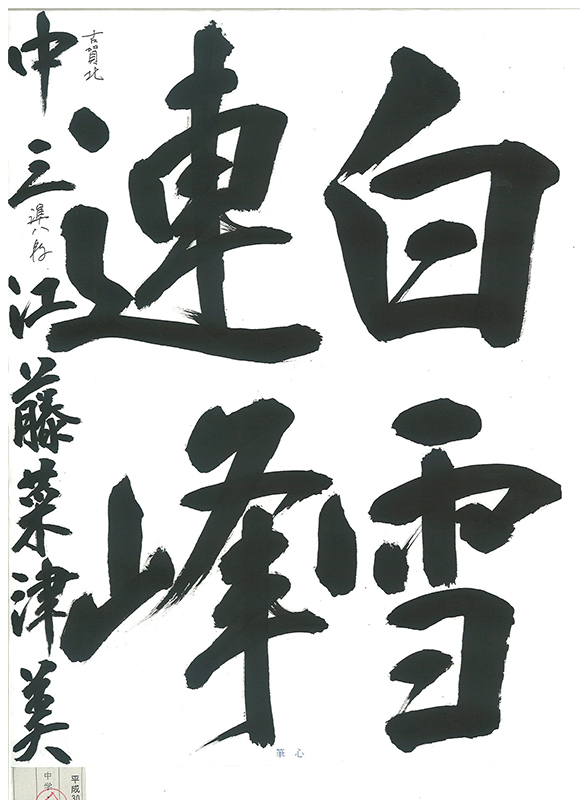 白雪
連峰
中三 江藤菜津美
古賀北
準八段
筆心
中学
平成30